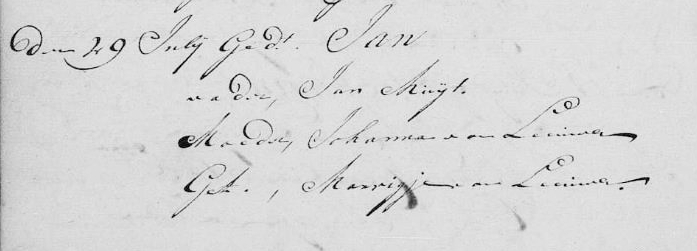 den 29 July Ged.t Jan
vader, Jan Muijt.
Moeder, Johanna van Leeuwe
Get., Marrigje van Leeuwe.